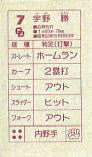 7 宇野 勝
球種 判定(打撃)
ストレート ホームラン
カーブ 2塁打
シュート アウト
スライダー ヒット
フォーク アウト
内野手